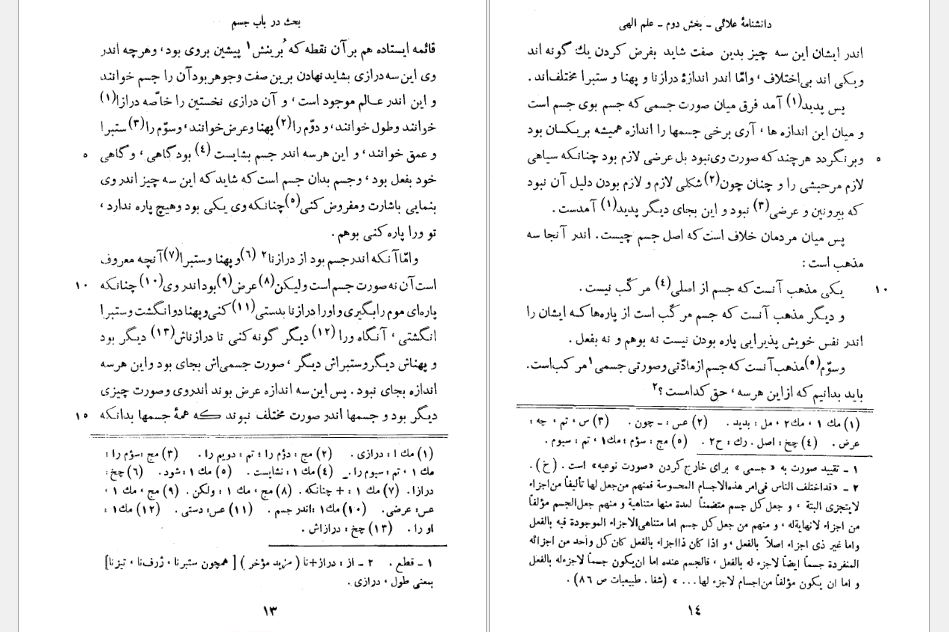 بحث در باب جسم
قائمه ایستاده هم بر آن نقطه که بُرینش۱ پیشین بروی بود، وهرچه اندر
وی این سه درازی بشاید نهادن برین صفت وجوهربود آن را جسم خوانند
و این اندر عالم موجود است، و آن درازی نخستین را خاصّه درازا(۱)
خوانند وطول خوانند، و دوّم را(۲) پهنا وعرض خوانند، وسوّم را(۳) ستبرا
و عمق خوانند، و این هرسه اندر جسم بشایست (۴) بود گاهی، و گاهی ۵
خود بفعل بود، وجسم بدان جسم است که شاید که این سه چیز اندر وی
بنمایی باشارت ومفروض کنی(۵) چنانکه وی یکی بود وهیچ پاره ندارد،
تو ورا پاره کنی بوهم.
وامّا آنکه اندرجسم بود از درازنا۲ (۶) و پهنا وستبرا(۷) آنچه معروف
است آن نه صورت جسم است ولیکن(۸) عرض(۹) بود اندر وی(۱۰) چنانکه ۱۰
پاره‌ای موم را بگیری و اورا درازنا بدستی(۱۱) کنی و پهنا دوانگشت وستبرا
انگشتی، آنگاه ورا(۱۲) دیگر گونه کنی تا درازناش(۱۳) دیگر بود
و پهناش دیگر وستبراش دیگر، صورت جسمی‌اش بجای بود واین هرسه
اندازه بجای نبود. پس این سه اندازه عرض بوند اندروی وصورت چیزی
دیگر بود و جسمها اندر صورت مختلف نبوند که همهٔ جسمها بدانکه ۱۵
(۱) مك ۱: درازی. (۲) مج: دوّم را؛ تم: دویم را. (۳) مج: سوّم را؛
مك ۱، تم: سیوم را. (۴) مك ۱: نشایست. (۵) مك ۱: شود. (۶) چخ:
درازا. (۷) مك ۱: + چنانکه. (۸) مج، مك ۱: ولکن. (۹) مج، مك ۱،
عس: عرضی. (۱۰) مك۱: اندر جسم. (۱۱) عس: دستی. (۱۲) مك۱:
او را. (۱۳) چخ: درازاش.
۱ - قطع. ۲ - از: دراز+نا (مزید مؤخر) [همچون ستبرنا، ژرف‌نا، تیزنا]
بمعنی طول، درازی.
۱۳
دانشنامهٔ علائی - بخش دوم - علم الهی
اندر ایشان این سه چیز بدین صفت شاید بفرض کردن یك گونه اند
ویکی اند بی‌اختلاف، وامّا اندر اندازهٔ درازنا و پهنا و ستبرا مختلف‌اند.
پس پدید(۱) آمد فرق میان صورت جسمی که جسم بوی جسم است
و میان این اندازه ها، آری برخی جسمها را اندازه همیشه بریکسان بود
وبرنگردد هرچند که صورت وی‌نبود بل عرضی لازم بود چنانکه سیاهی ۵
لازم مرحبشی را و چنان چون(۲) شکلی لازم و لازم بودن دلیل آن نبود
که بیرونین و عرضی (۳) نبود و این بجای دیگر پدید(۱) آمدست.
پس میان مردمان خلاف است که اصل جسم چیست. اندر آنجا سه
مذهب است:
یکی مذهب آنست که جسم از اصلی(۴) مرکّب نیست. ۱۰
و دیگر مذهب آنست که جسم مرکّب است از پاره‌ها که ایشان را
اندر نفس خویش پذیرایی پاره بودن نیست نه بوهم و نه بفعل.
وسوّم(۵) مذهب آنست که جسم از مادّتی وصورتی جسمی۱ مرکب است.
باید بدانیم که ازاین هرسه، حق کدامست؟۲
(۱) مك ۱، مك۲، مل: بدید. (۲) عس: - چون. (۳) س، تم، چه:
عرض. (۴) چخ: اصل. رك: ح۲. (۵) مج: سؤم؛ مك۱، تم: سیوم.
۱ - تقیید صورت به «جسمی» برای خارج کردن «صورت نوعیه» است. (خ).
۲ - «قداختلف الناس فی‌امر هذه‌الاجسام المحسوسة فمنهم من‌جعل لها تألیفاً من‌اجزاء
لایتجزی البتة، و جعل کل جسم متضمناً لعدة منها متناهیة و منهم جعل‌الجسم مؤلفاً
من اجزاء لانهایةله، و منهم من جعل کل جسم اما متناهی‌الاجزاء الموجودة فیه بالفعل
واما غیر ذی اجزاء اصلاً بالفعل، و اذا کان ذااجزاء بالفعل کان کل واحد من اجزائه
المنفردة جسماً ایضاً لاجزء له بالفعل، فالجسم عنده اما ان‌یکون جسماً لاجزءله بالفعل
و اما ان یکون مؤلفاً من‌اجسام لاجزء لها...» (شفا. طبیعیات ص ۸۶).
۱۴